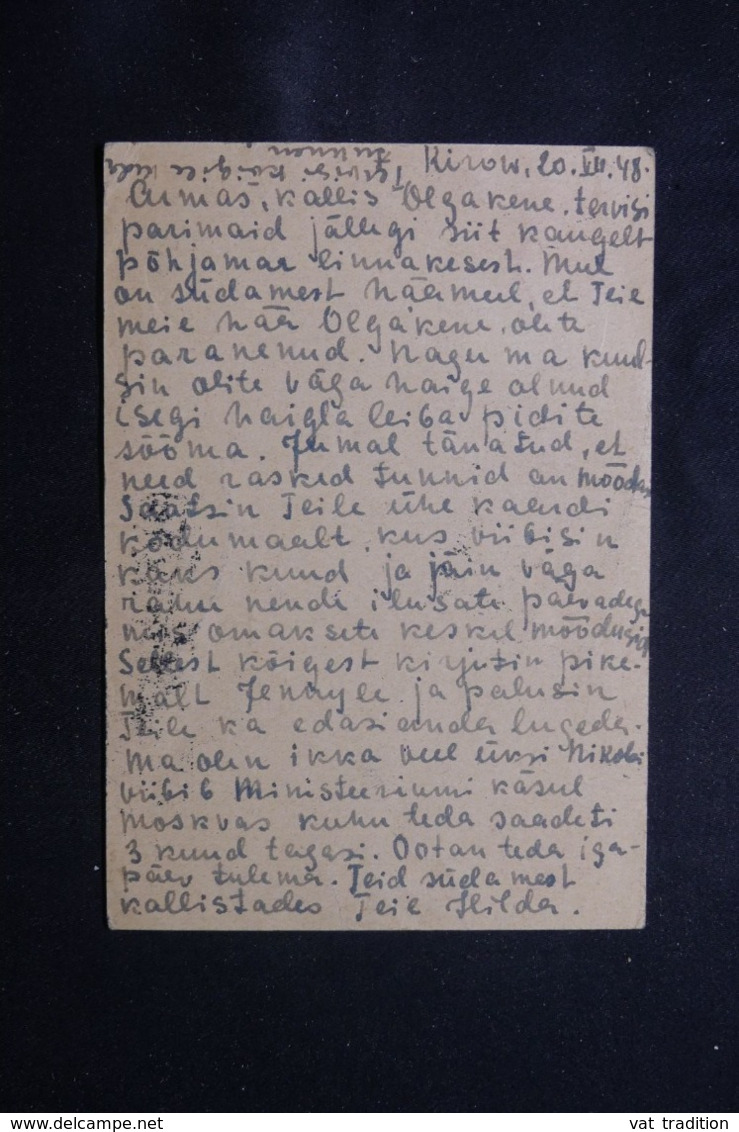 Kirow, 20. VII. 48.
Tervisi kõigile
Armas, kallis Olgakene, tervisi
parimaid jällegi siit kaugelt
põhjamaa linnakesest. Mul
on südamest häämeel, et Teie
meie hää Olgakene, olite
paranenud. Nagu ma kuul-
sin olite väga haige olnud
isegi haigla leiba pidite
sööma. Jumal tänatud, et
need rasked tunnid on möödas
Saatsin Teile ühe kaardi
kodumaalt, kus viibisin
kaks kuud ja jäin väga
rahu nende ilusate päevadega
mis omaksete keskel möödusid
Sellest kõigest kirjutin pike-
malt Jennyle ja palusin
Teile ka edasi anda lugeda.
Ma olen ikka veel üksi Nikolai
viibib Ministeeriumi käsul
Moskvas kuhu teda saadeti
3 kuud tagasi. Ootan teda iga-
päev tulema. Teid südamest
kallistades Teie Hilda.
delcampe.net
vat tradition